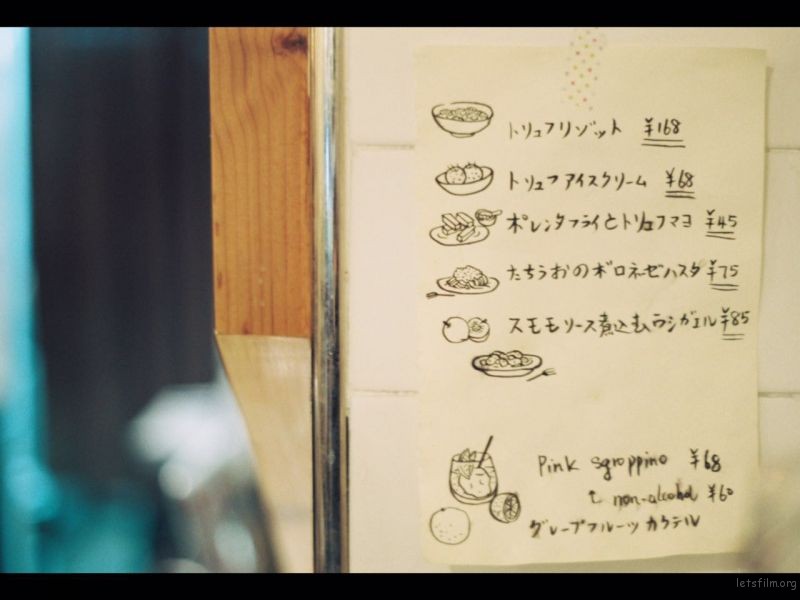 トリュフリゾット ¥168
トリュフアイスクリーム ¥68
ポレンタフライとトリュフマヨ ¥45
たちうおのボロネーゼパスタ ¥75
スモモソース煮込むウシガエル ¥85
Pink sgroppino ¥68
↑ non-alcohol ¥60
グレープフルーツカクテル
letsfilm.org